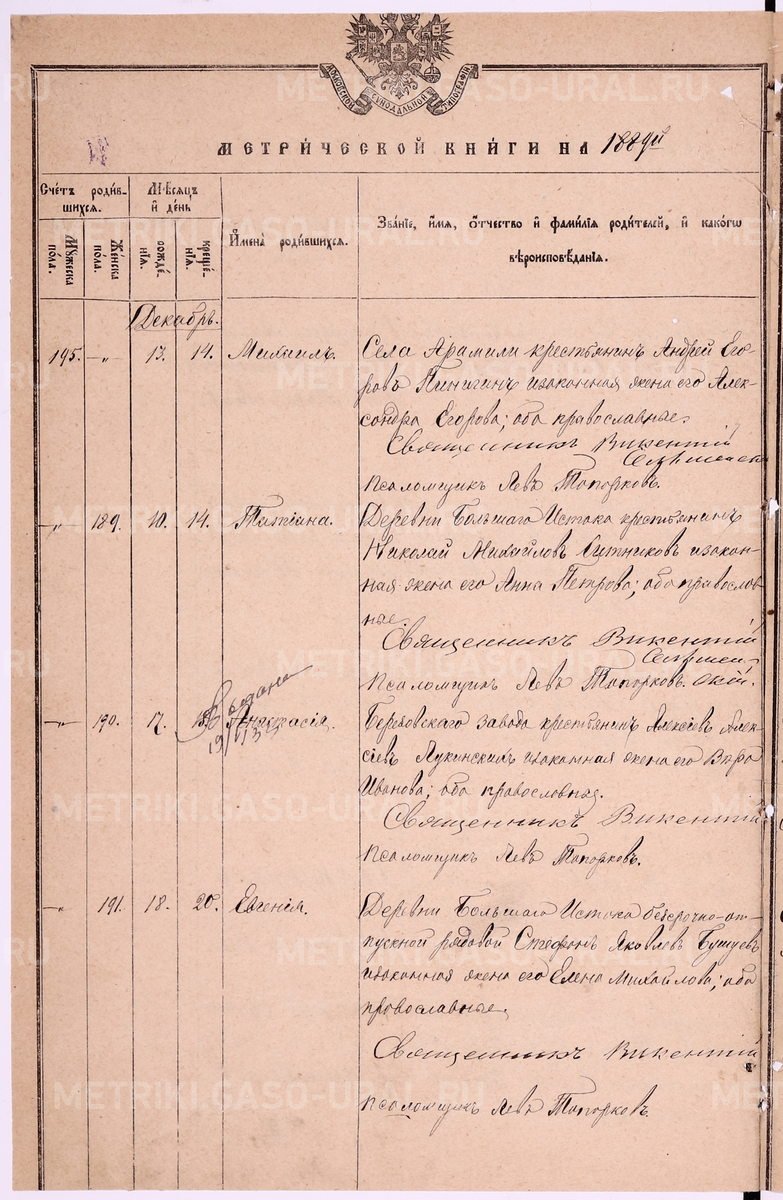 МОСКОВСКОЙ СѴНОДАЛЬНОЙ ТИПОГРАФІИ
МЕТРИ́ЧЕСКОЙ КНИ́ГИ НА 1889й
Сче́тъ роди́вшихся.
Мꙋжеска по́ла.
Же́нска по́ла.
Мѣ́сяцъ и҆ де́нь
рожде́нїѧ.
креще́нїѧ.
И҆мена̀ роди́вшихсѧ.
Зва́нїе, и҆́мѧ, ѻ҆́тчество и҆ фами́лїѧ роди́телей, и҆ како́гѡ вѣроисповѣ́данїѧ.
Декабрь.
195. —„— 13. 14. Михаилъ. Села Арамили крестьянинъ Андрей Его-
ровъ Пинигинъ и законная жена его Алек-
сандра Егорова; оба православные.
Священникъ Викентій
Псаломщикъ Левъ Топорковъ.
—„— 189. 10. 14. Татіана. Деревни Большаго Истока крестьянинъ
Николай Михайловъ Ситниковъ и закон-
ная жена его Анна Петрова; оба православ-
ные.
Священникъ Викентій
Псаломщикъ Левъ Топорковъ.
Выдана
—„— 190. 17. Анастасія. Березовскаго завода крестьянинъ Алексѣевъ Алек-
сѣевъ Лукинскихъ и законная жена его Вѣра
Иванова; оба православные.
Священникъ Викентій
Псаломщикъ Левъ Топорковъ.
—„— 191. 18. 20. Евгенія. Деревни Большаго Истока безсрочно-от-
пускной рядовой Стефанъ Яковлевъ Бушуевъ
и законная жена его Елена Михайлова; оба
православные.
Священникъ Викентій
Псаломщикъ Левъ Топорковъ.
METRIKI.GASO-URAL.RU